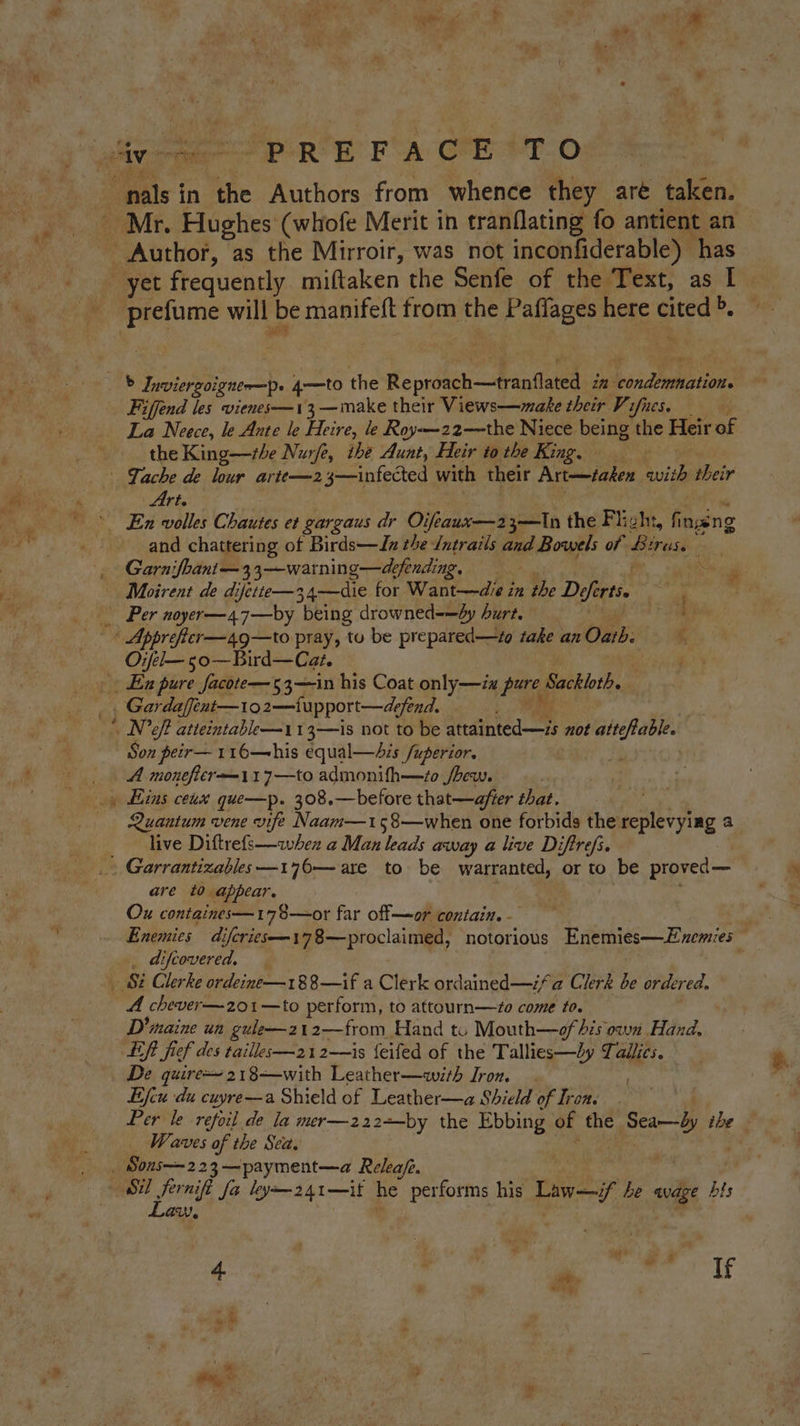 iv PREFACE TO
nals in the Authors from whence they are taken.
Mr. Hughes (whoſe Merit in tranſlating ſo antient an
Author, as the Mirroir, was not inconſiderable) has
yet frequently miſtaken the Senſe of the Text, as I
preſume will be manifeſt from the Paſſages here cited ᵇ.
ᵇ Inviergoigner—p. 4—to the Reproach—tranſlated in condemnation.
Fiſſend les vienes—13—make their Views—make their Viſnes.
La Neece, le Ante le Heire, le Roy—22—the Niece being the Heir of
the King—the Nurſe, the Aunt, Heir to the King.
Tache de lour arte—23—infected with their Art—taken with their
Art.
En volles Chautes et gargaus dr Oiſeaux—23—In the Flight, ſinging
and chattering of Birds—In the Intrails and Bowels of Birds.
Garniſhant—33—warning—defending.
Moirent de diſette—34—die for Want—die in the Deſerts.
Per noyer—47—by being drowned—by hurt.
Appreſter—49—to pray, to be prepared—to take an Oath.
Oiſel—50—Bird—Cat.
En pure ſacote—53—in his Coat only—in pure Sackloth.
Gardaſſent—102—ſupport—defend.
N'eſt atteintable—113—is not to be attainted—is not atteſtable.
Son peir—116—his equal—his ſuperior.
A moneſter—117—to admoniſh—to ſhew.
Eins ceux que—p. 308.—before that—after that.
Quantum vene viſe Naam—158—when one forbids the replevying a
live Diſtreſs—when a Man leads away a live Diſtreſs.
Garrantizables—176—are to be warranted, or to be proved—
are to appear.
Ou containes—178—or far off—or contain.
Enemies diſcries—178—proclaimed, notorious Enemies—Enemies
diſcovered.
Si Clerke ordeine—188—if a Clerk ordained—if a Clerk be ordered.
A chever—201—to perform, to attourn—to come to.
D'maine un gule—212—from Hand to Mouth—of his own Hand.
Eſt ſieſ des tailles—212—is ſeiſed of the Tallies—by Tallies.
De quire—218—with Leather—with Iron.
Eſcu du cuyre—a Shield of Leather—a Shield of Iron.
Per le refoil de la mer—222—by the Ebbing of the Sea—by the
Waves of the Sea.
Sons—223—payment—a Releaſe.
Sil ferniſt ſa ley—241—if he performs his Law—if he wage his
Law.
4 If